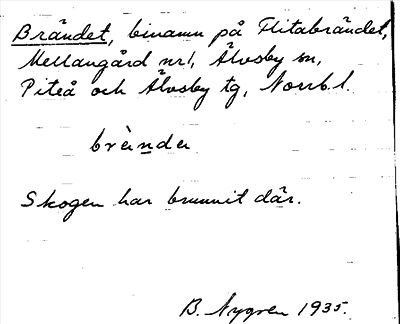 Brändet, binamn på Flitabrändet,
Mellangård nr 1, Älvsby sn,
Piteå och Älvsby tg, Norrb. l.
brèndɐ
Skogen har brunnit där.
B. Nygren 1935.